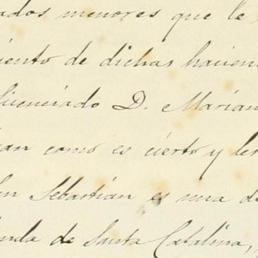 ados menores que le
iento de dichas hacien
licenciado D. Marian
can como es cierto y les
an Sebastián es una de
enda de Santa Catalina,